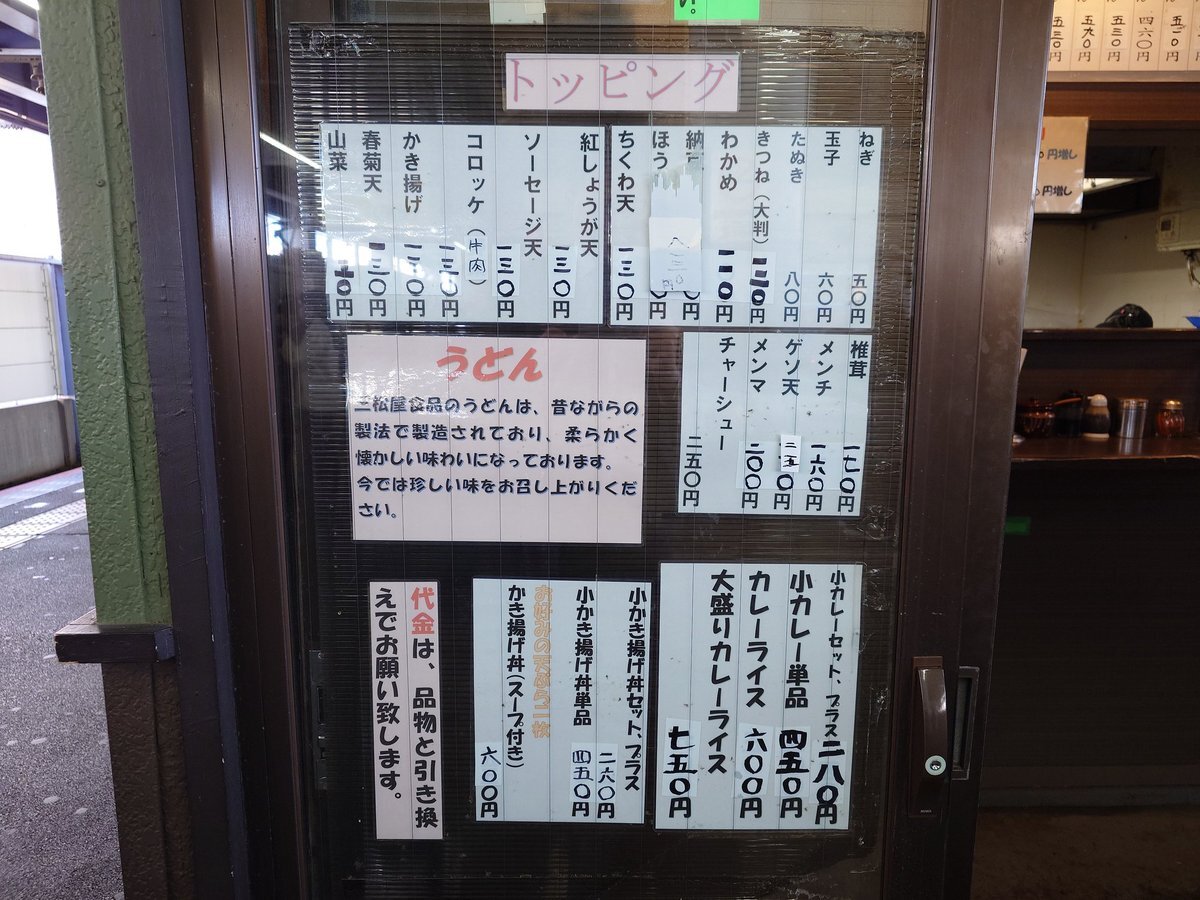 トッピング
ねぎ 五〇円
玉子 六〇円
たぬき 八〇円
きつね(大判) 一二〇円
わかめ 一一〇円
ちくわ天 一三〇円
紅しょうが天 一三〇円
ソーセージ天 一三〇円
コロッケ(牛肉)
かき揚げ
春菊天 一三〇円
山菜
椎茸
メンチ 一六〇円
ゲソ天
メンマ 二〇〇円
チャーシュー 二五〇円
うどん
三松屋食品のうどんは、昔ながらの
製法で製造されており、柔らかく
懐かしい味わいになっております。
今では珍しい味をお召し上がりくだ
さい。
小カレーセット、プラス二八〇円
小カレー単品 四五〇円
カレーライス 六〇〇円
大盛りカレーライス 七五〇円
小かき揚げ丼セット、プラス 二六〇円
小かき揚げ丼単品 四五〇円
お好みの天ぷら二枚
かき揚げ丼(スープ付き) 六〇〇円
代金は、品物と引き換
えでお願い致します。
円増し
円増し